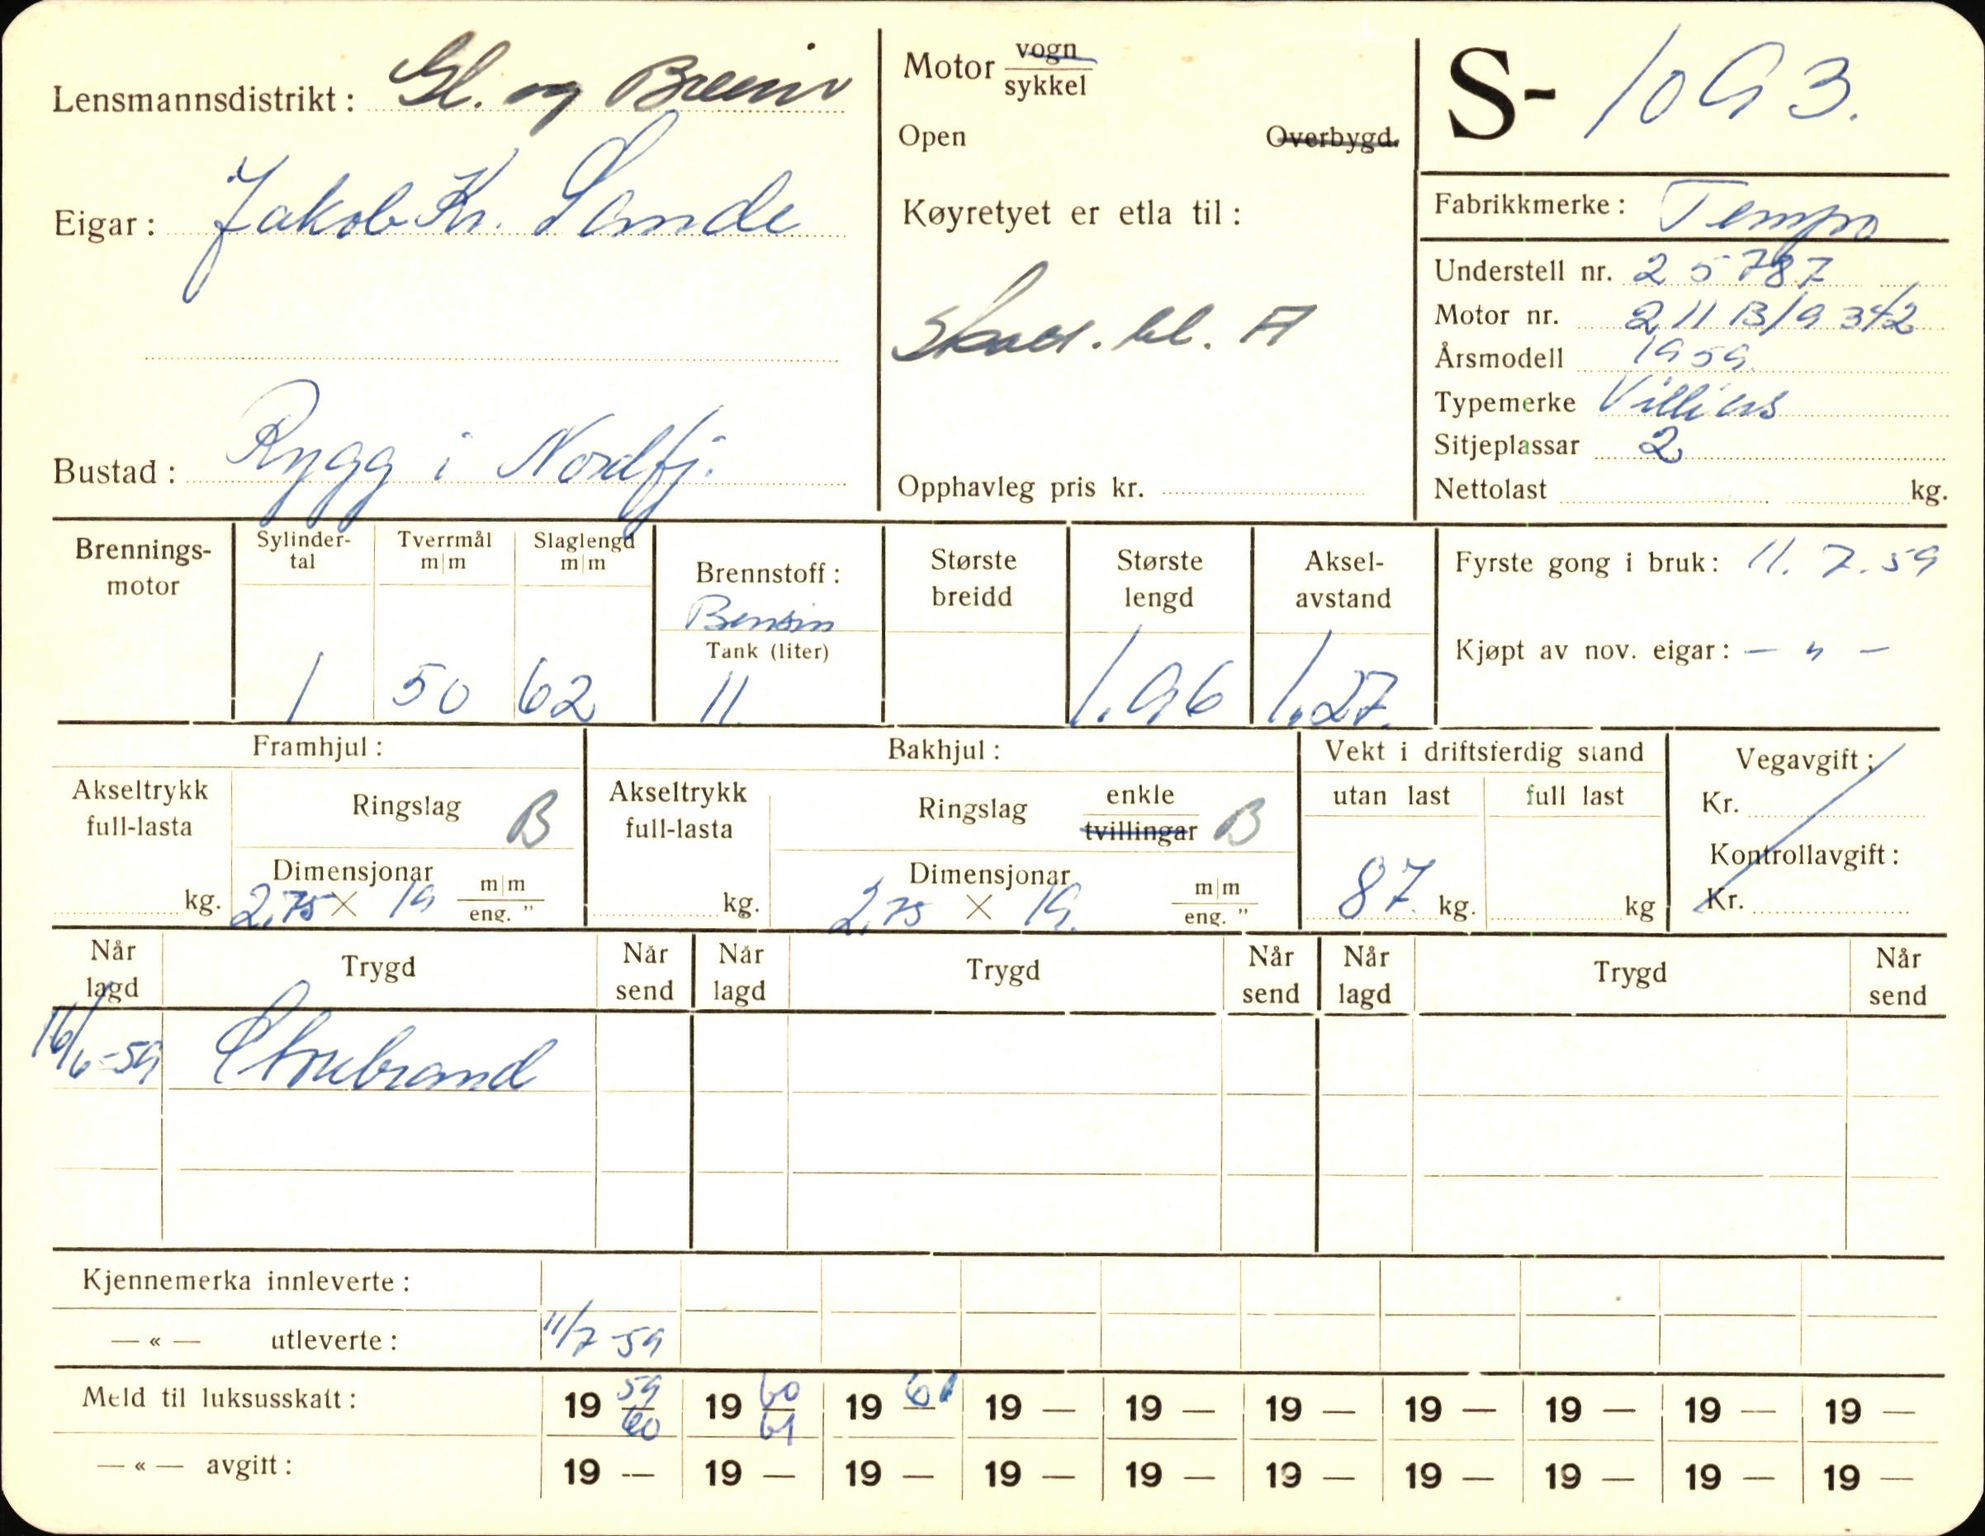 Lensmannsdistrikt: Gl. og Breim
Eigar: Jakob Kr. Sande
Bustad: Rygg i Nordfj.
Motor vogn
sykkel
Open Overbygd.
Køyretyet er etla til:
Skads. kl. A
Opphavleg pris kr.
S- 1093.
Fabrikkmerke: Tempo
Understell nr. 25787
Motor nr. 211 B/9342
Årsmodell 1959.
Typemerke Villiers
Sitjeplassar 2
Nettolast kg.
Brennings-
motor
Sylinder-
tal
1
Tverrmål
m|m
50
Slaglengd
m|m
62
Brennstoff:
Bensin
Tank (liter)
11
Største
breidd
Største
lengd
1.96
Aksel-
avstand
1.27.
Fyrste gong i bruk: 11. 7. 59
Kjøpt av nov. eigar: — " —
Framhjul:
Akseltrykk
full-lasta
kg.
Ringslag B
Dimensjonar
2,75 × 19 m|m
eng. "
Bakhjul:
Akseltrykk
full-lasta
kg.
Ringslag enkle
tvillingar B
Dimensjonar
2,75 × 19. m|m
eng. "
Vekt i driftsferdig stand
utan last full last
87. kg. kg
Vegavgift:
Kr.
Kontrollavgift:
Kr.
Når
lagd Trygd Når
send Når
lagd Trygd Når
send Når
lagd Trygd Når
send
16/6-59 Storebrand
Kjennemerka innleverte:
— « — utleverte: 11/7 59
Meld til luksusskatt: 19 59/60 19 60/61 19 61 19 — 19 — 19 — 19 — 19 — 19 — 19 —
— « — avgift: 19 — 19 — 19 — 19 — 19 — 19 — 19 — 19 — 19 — 19 —